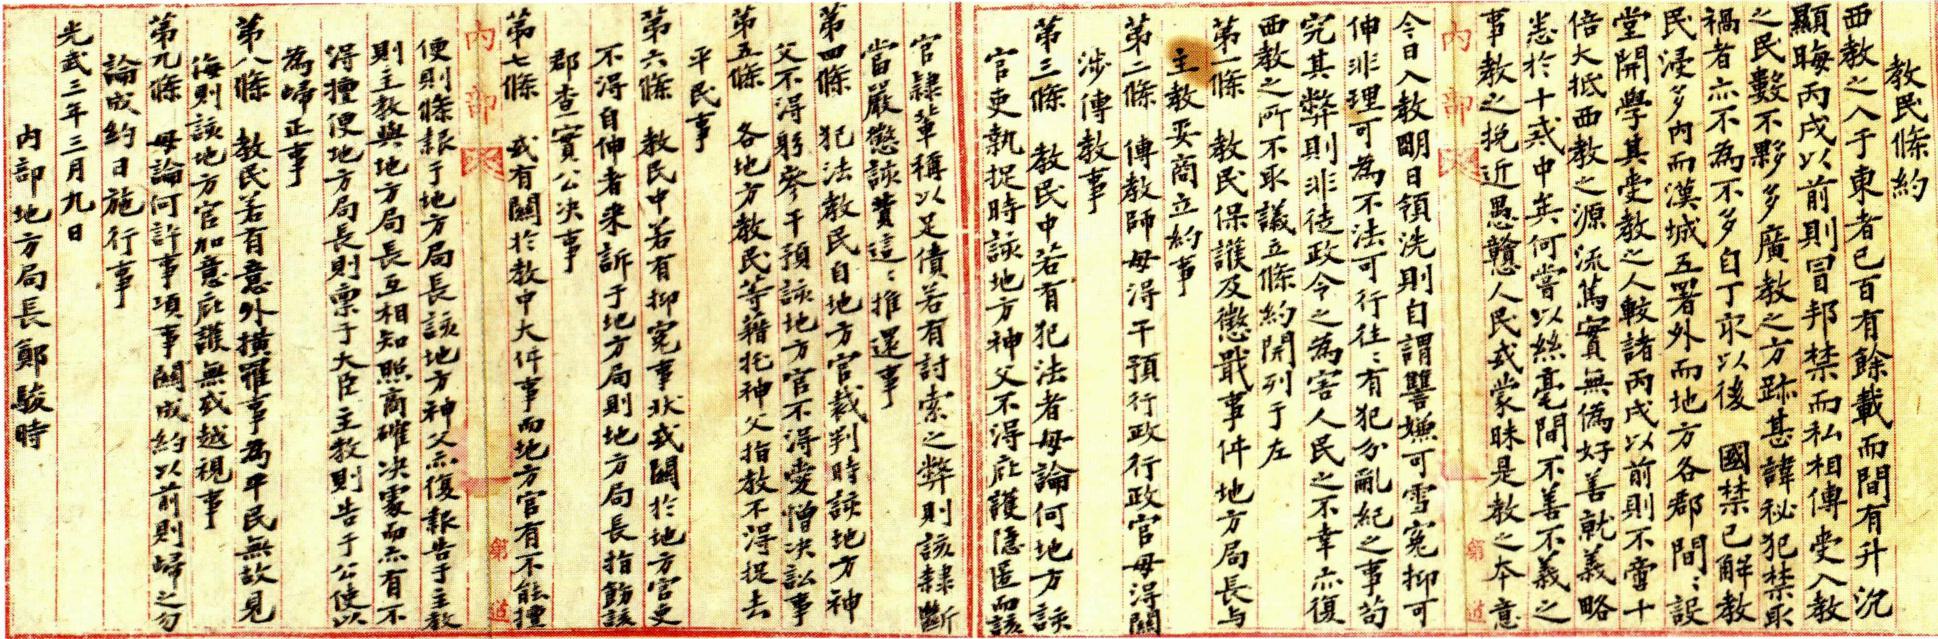 教民條約
西教之入于東者已百有餘載而間有升沉
顯晦丙戌以前則冒邦禁而私相傳受入教
之民數不夥多廣教之方跡甚諱秘犯禁取
禍者亦不為不多自丁亥以後　國禁已解教
民浸多內而漢城五署外而地方各郡間〻設
堂開學其受教之人較諸丙戌以前則不啻十
倍大抵西教之源流篤實無偽好善就義略
恙於十戒中矣何嘗以絲毫間不善不義之
事教之挽近愚戇人民或蒙昧是教之本意
內部
第　道
今日入教明日領洗則自謂讐嫌可雪冤抑可
伸非理可為不法可行往〻有犯分亂紀之事苟
究其弊則非徒政令之為害人民之不幸亦復
西教之所不取議立條約開列于左
第一條　教民保護及懲戢事件地方局長与
主教妥商立約事
第二條　傳教師毋得干預行政行政官毋得關
涉傳教事
第三條　教民中若有犯法者毋論何地方該
官吏執捉時該地方神父不得庇護隱匿而該
官隷輩稱以足債若有討索之弊則該隷斷
當嚴懲該費這〻推還事
第四條　犯法教民自地方官裁判時該地方神
父不得躬參干預該地方官不得愛憎决訟事
第五條　各地方教民等藉托神父指教不得捉去
平民事
第六條　教民中若有抑冤事狀或關於地方官吏
不得自伸者來訴于地方局則地方局長指飭該
郡查實公决事
第七條　或有關於教中大件事而地方官有不能擅
內部
第　道
便則條報于地方局長該地方神父亦復報告于主教
則主教與地方局長互相知照商確决處而亦有不
得擅便地方局長則禀于大臣主教則告于公使以
為歸正事
第八條　教民若有意外橫罹事為平民無故見
侮則該地方官加意庇護無或越視事
第九條　毋論何許事項事關成約以前則歸之勿
論成約日施行事
光武三年三月九日
內部地方局長鄭駿時